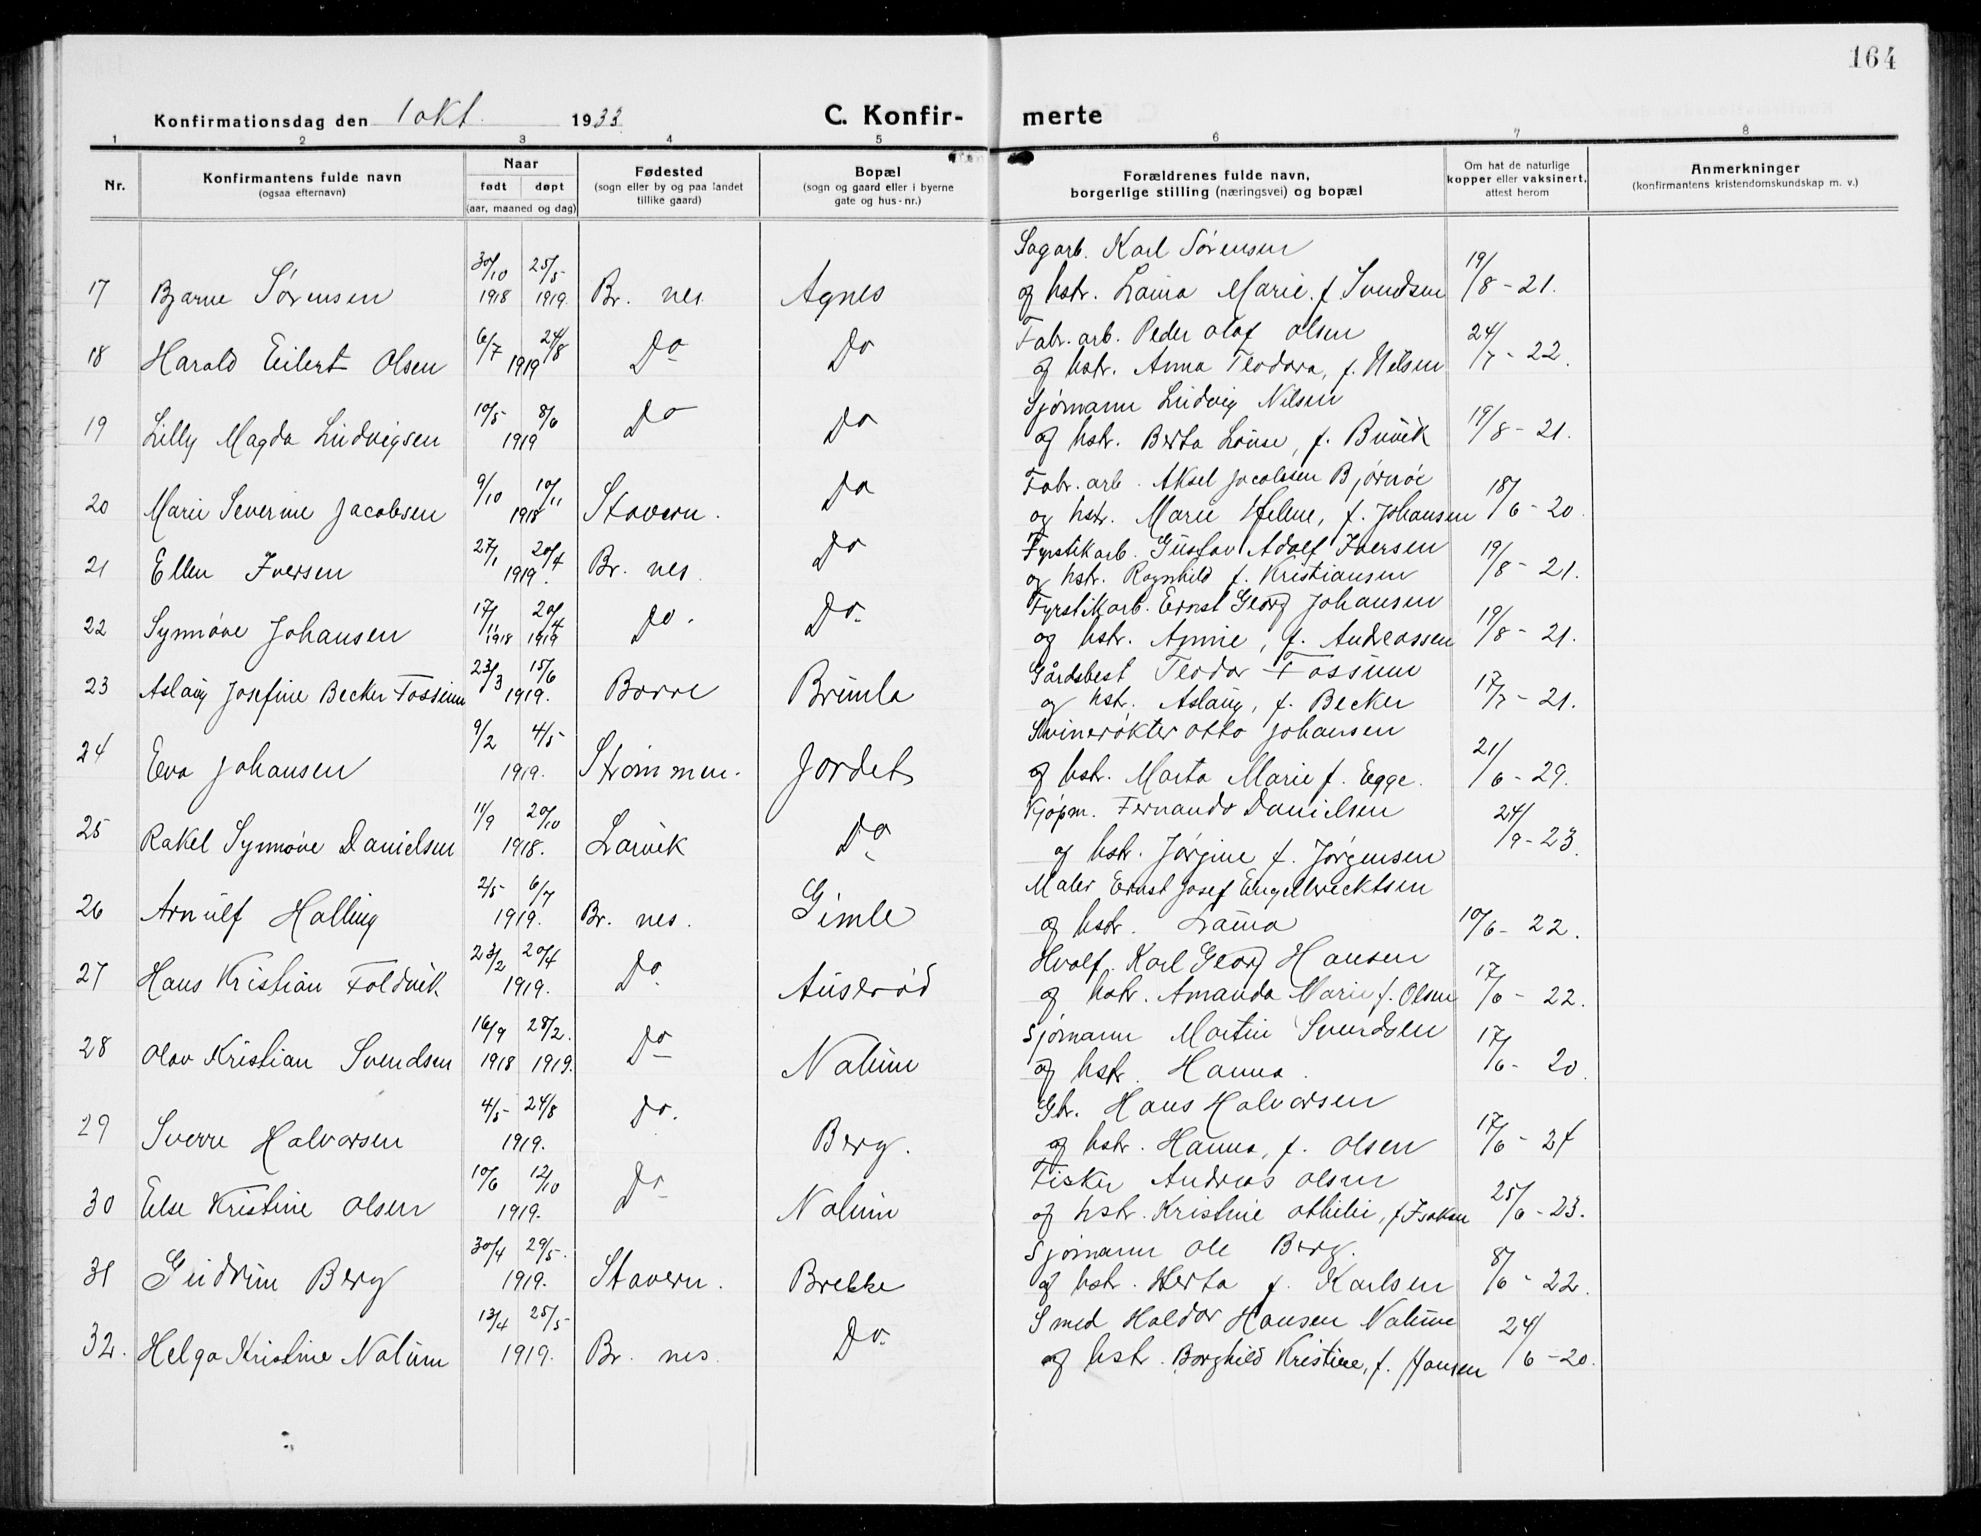 164
Konfirmationsdag den 1 okt. 1933
C. Konfir- merte
1 2 3 4 5 6 7 8
Nr.
Konfirmantens fulde navn
(ogsaa efternavn)
Naar
født døpt
(aar, maaned og dag)
Fødested
(sogn eller by og paa landet
tillike gaard)
Bopæl
(sogn og gaard eller i byerne
gate og hus-nr.)
Forældrenes fulde navn,
borgerlige stilling (næringsvei) og bopæl
Om hat de naturlige
kopper eller vaksinert,
attest herom
Anmerkninger
(konfirmantens kristendomskundskap m. v.)
Sagarb. Karl Sørensen
17 Bjarne Sørensen 30/10 1918 25/5 1919. Br. nes. Agnes og hstr. Laura Marie f. Svendsen 19/8 - 21.
Fabr. arb. Peder Olaf Olsen
18 Harald Eilert Olsen 6/7 24/8 1919 Do Do og hstr. Anna Teodora, f. Nilsen 24/7 - 22.
Sjømann Ludvig Nilsen
19 Lilly Magda Ludvigsen 10/5 8/6 1919 Do Do og hstr. Berta Louise, f. Buvik 19/8 - 21.
Fabr. arb. Aksel Jacobsen Bjørnøe
20 Marie Severine Jacobsen 9/10 10/11 1918 Stavern. Do og hstr. Marie Helene, f. Johansen 18/6 - 20.
Fyrstikarb. Gustav Adolf Iversen
21 Ellen Iversen 27/1 20/4 1919. Br. nes. Do og hstr. Ragnhild f. Kristiansen 19/8 - 21.
Fyrstikarb. Ernst Georg Johansen
22 Synnøve Johansen 17/11 1918 20/4 1919 Do. Do. og hstr. Annie, f. Andreassen 19/8 - 21.
Gårdsbest Teodor Fossum
23 Aslaug Josefine Becker Fossum 23/3 15/6 1919. Borre Brunla og hstr. Aslaug, f. Becker 17/7 - 21.
Svinerøkter Otto Johansen
24 Eva Johansen 9/2 4/5 1919. Strømmen. Jordet og hstr. Marta Marie f. Egge. 21/6 - 29.
Kjøpm. Fernando Danielsen
25 Rakel Synnøve Danielsen 11/9 20/10 1918. Larvik Do og hstr. Jørgine f. Jørgensen 24/9 - 23.
Maler Ernst Josef Engelbrecktsen
26 Arnulf Halling 2/5 6/7 1919. Br. nes. Gimle og hstr. Laura 10/6 - 22.
Hvalf. Karl Georg Hansen
27 Hans Kristian Foldvik 23/2 20/4 1919. Do. Auserød og hstr. Amanda Marie f. Olsen 17/6 - 22.
Sjømann Martin Svendsen
28 Olav Kristian Svendsen 16/9 1918 28/2. 1919. Do Nalum og hstr. Hanna. 17/6 - 20.
Gbr. Hans Halvorsen
29 Sverre Halvorsen 4/5 24/8 1919. Do. Berg. og hstr. Hanna, f. Olsen 17/6 - 21
Fisker Andreas Olsen
30 Else Kristine Olsen 10/6 12/10 1919. Do Nalum og hstr. Kristine Othilie, f Isaksen 25/6 - 23.
Sjømann Ole Berg.
31 Gudrun Berg 30/4 29/5. 1919. Stavern. Brekke og hstr. Herta f. Karlsen 8/6 - 22.
Smed Haldor Hansen Nalum
32. Helga Kristine Nalum 13/4 25/5 1919. Br. nes. Do. og hstr. Borghild Kristine, f. Hansen 24/6 - 20.